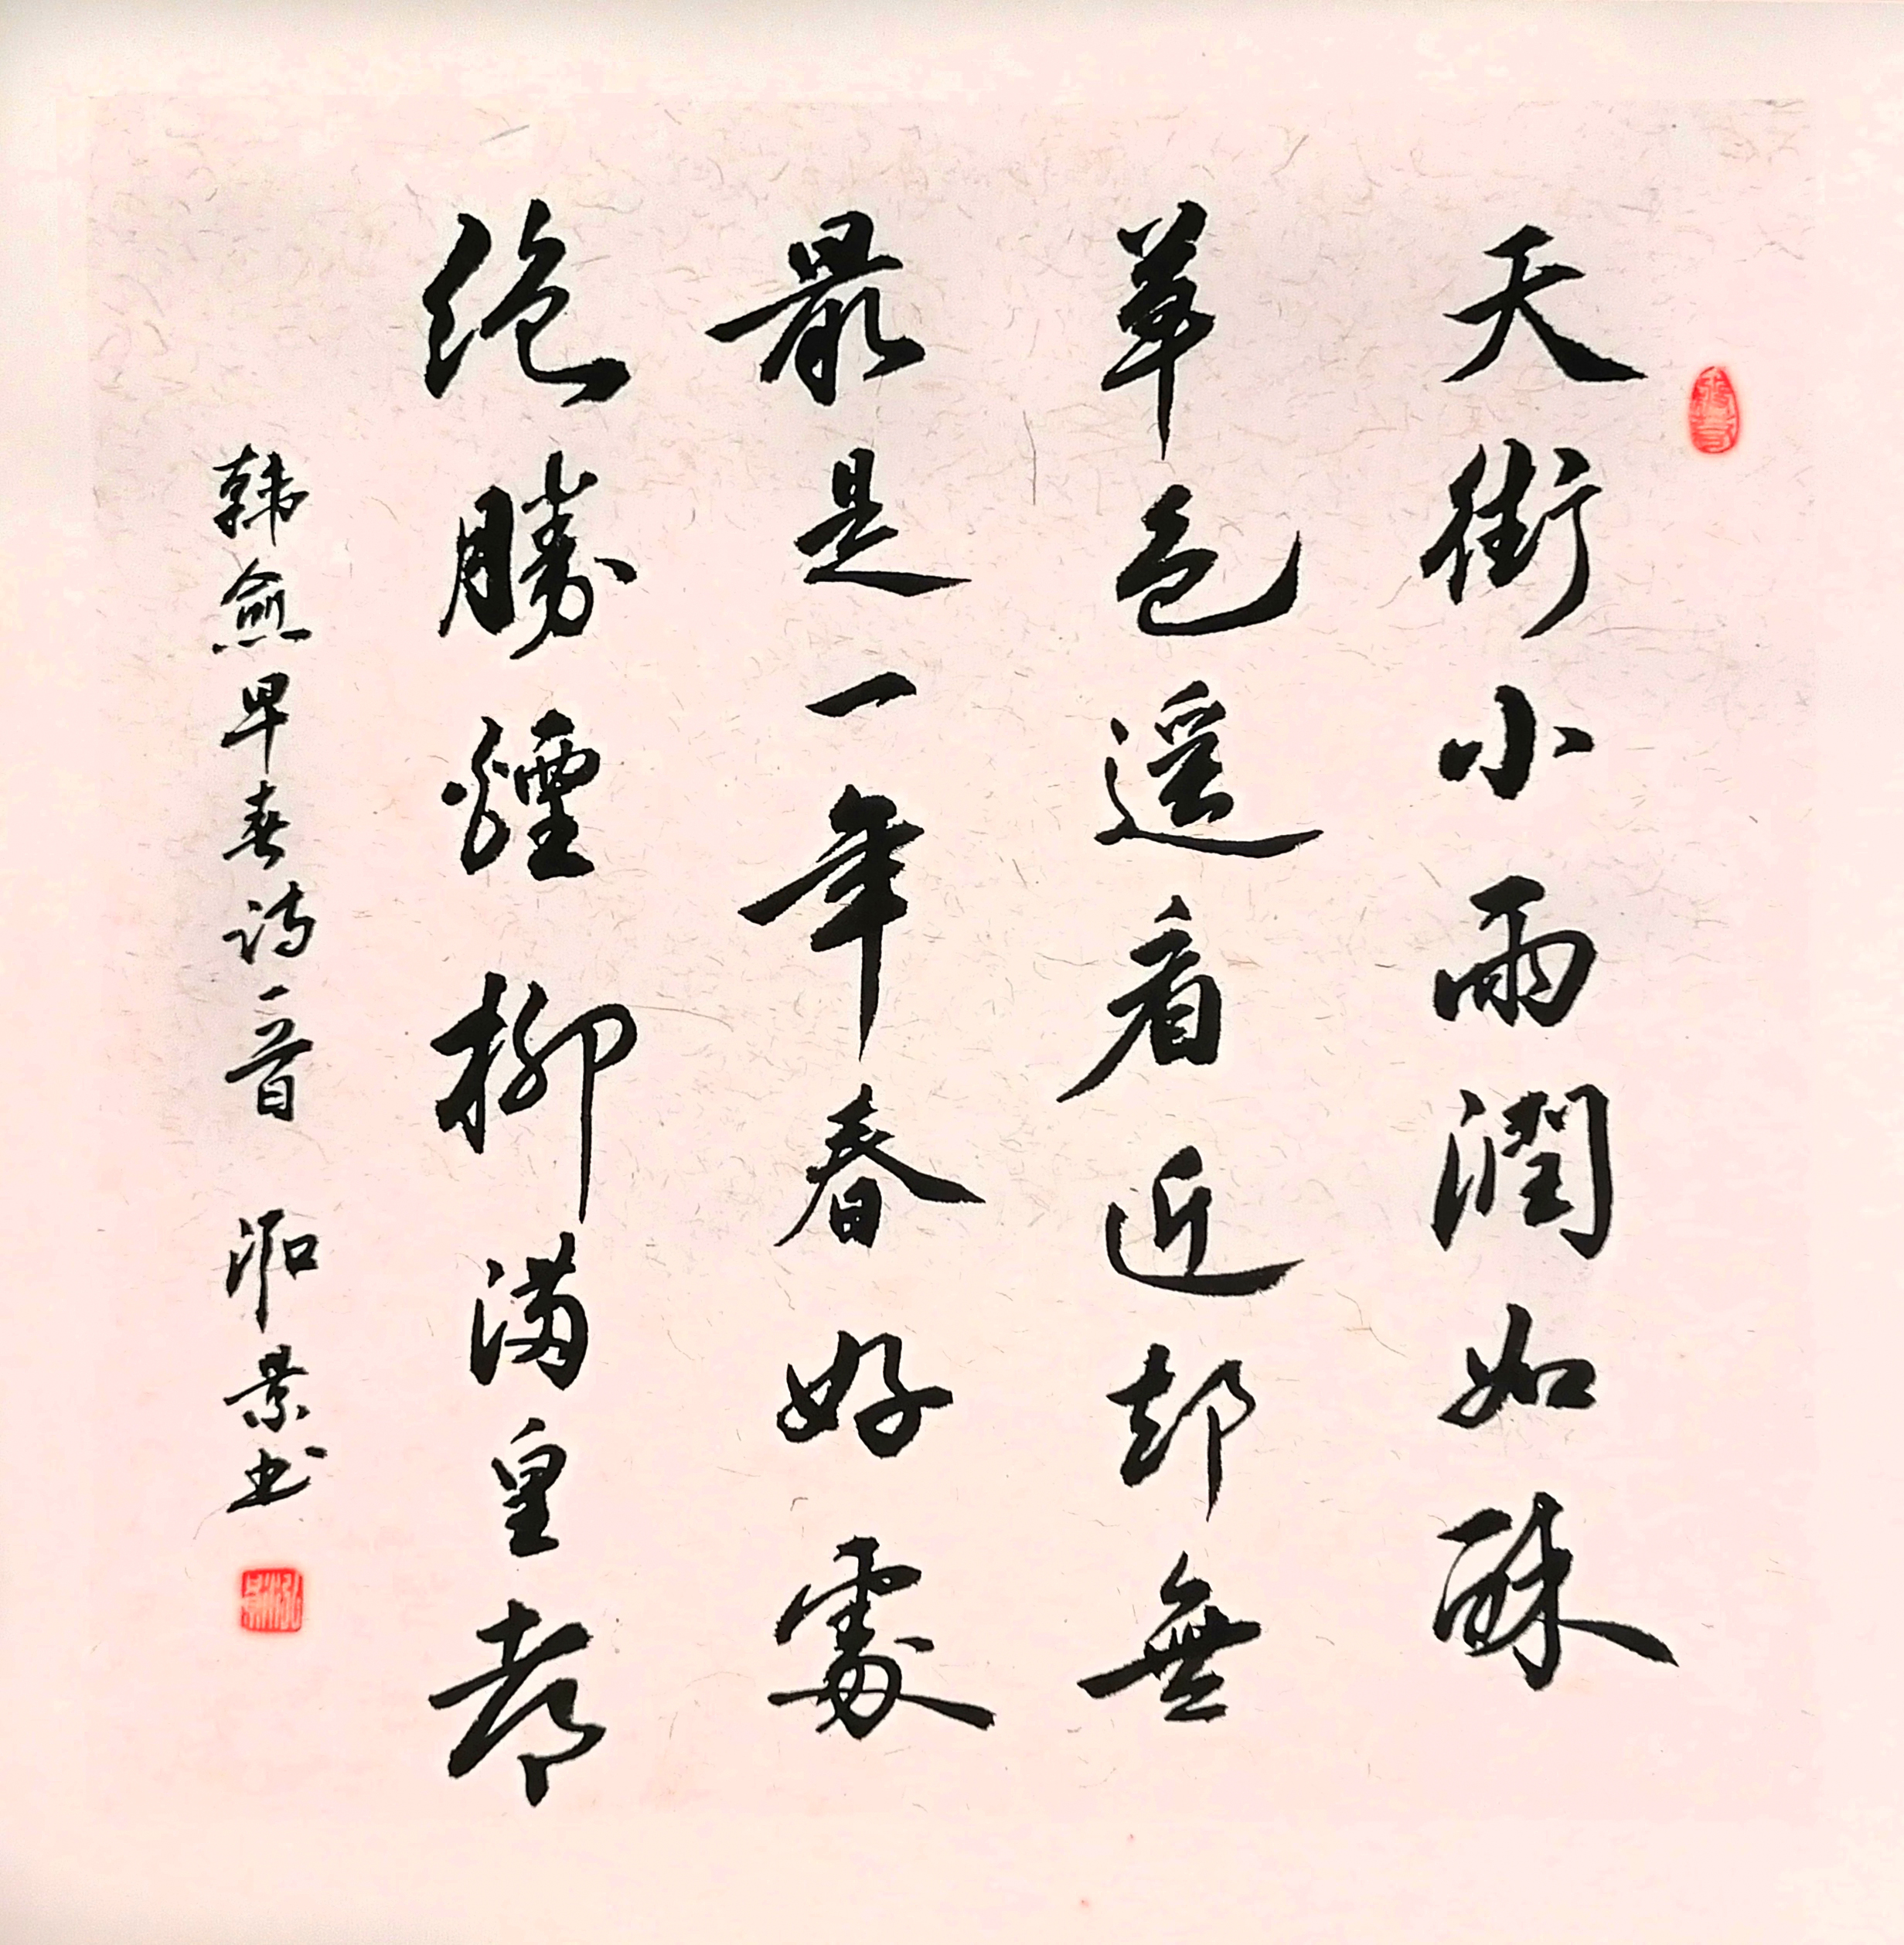 天街小雨潤如酥
草色遥看近却無
最是一年春好處
絶勝煙柳滿皇都
韩愈早春诗一首 景书